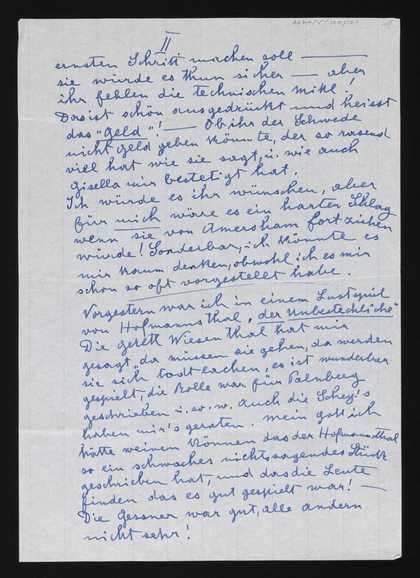 II
ernsten Schritt machen soll —
sie würde es thun sicher — aber
ihr fehlen die technischen mittl!
Das ist schön ausgedrückt und heisst
das "Geld"! — Ob ihr der Schwede
nicht Geld geben könnte, der so rasend
viel hat wie sie sagt, u. wie auch
Gisella mir bestetigt hat.
Ich würde es ihr wünschen, aber
für mich wäre es ein harter Schlag
wenn sie von Amersham fort ziehen
würde! Sonderbar, ich könnte es
mir kaum denken, obwohl ich es mir
schon so oft vorgestellt habe.
Vorgestern war ich in einem Lustspiel
von Hofmannsthal, "der Unbestechliche"
Die Gerett Wiesenthal hat mir
gesagt, "da müssen sie gehen, da werden
sie sich todt lachen, es ist wunderbar
gespielt, die Rolle war für Palnberg
geschrieben u. so. w. Auch die Schey's
haben mir's geraten. mein gott ich
hätte weinen können das der Hofmannsthal
so ein schwaches nichtssagendes Stück
geschrieben hat, und das die Leute
finden das es gut gespielt war! —
Die Gessner war gut, alle andern
nicht sehr!